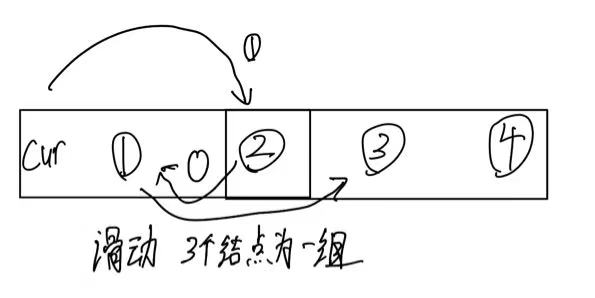 ①
cur ① 0 ② ③ ④
滑动 3个结点为一组